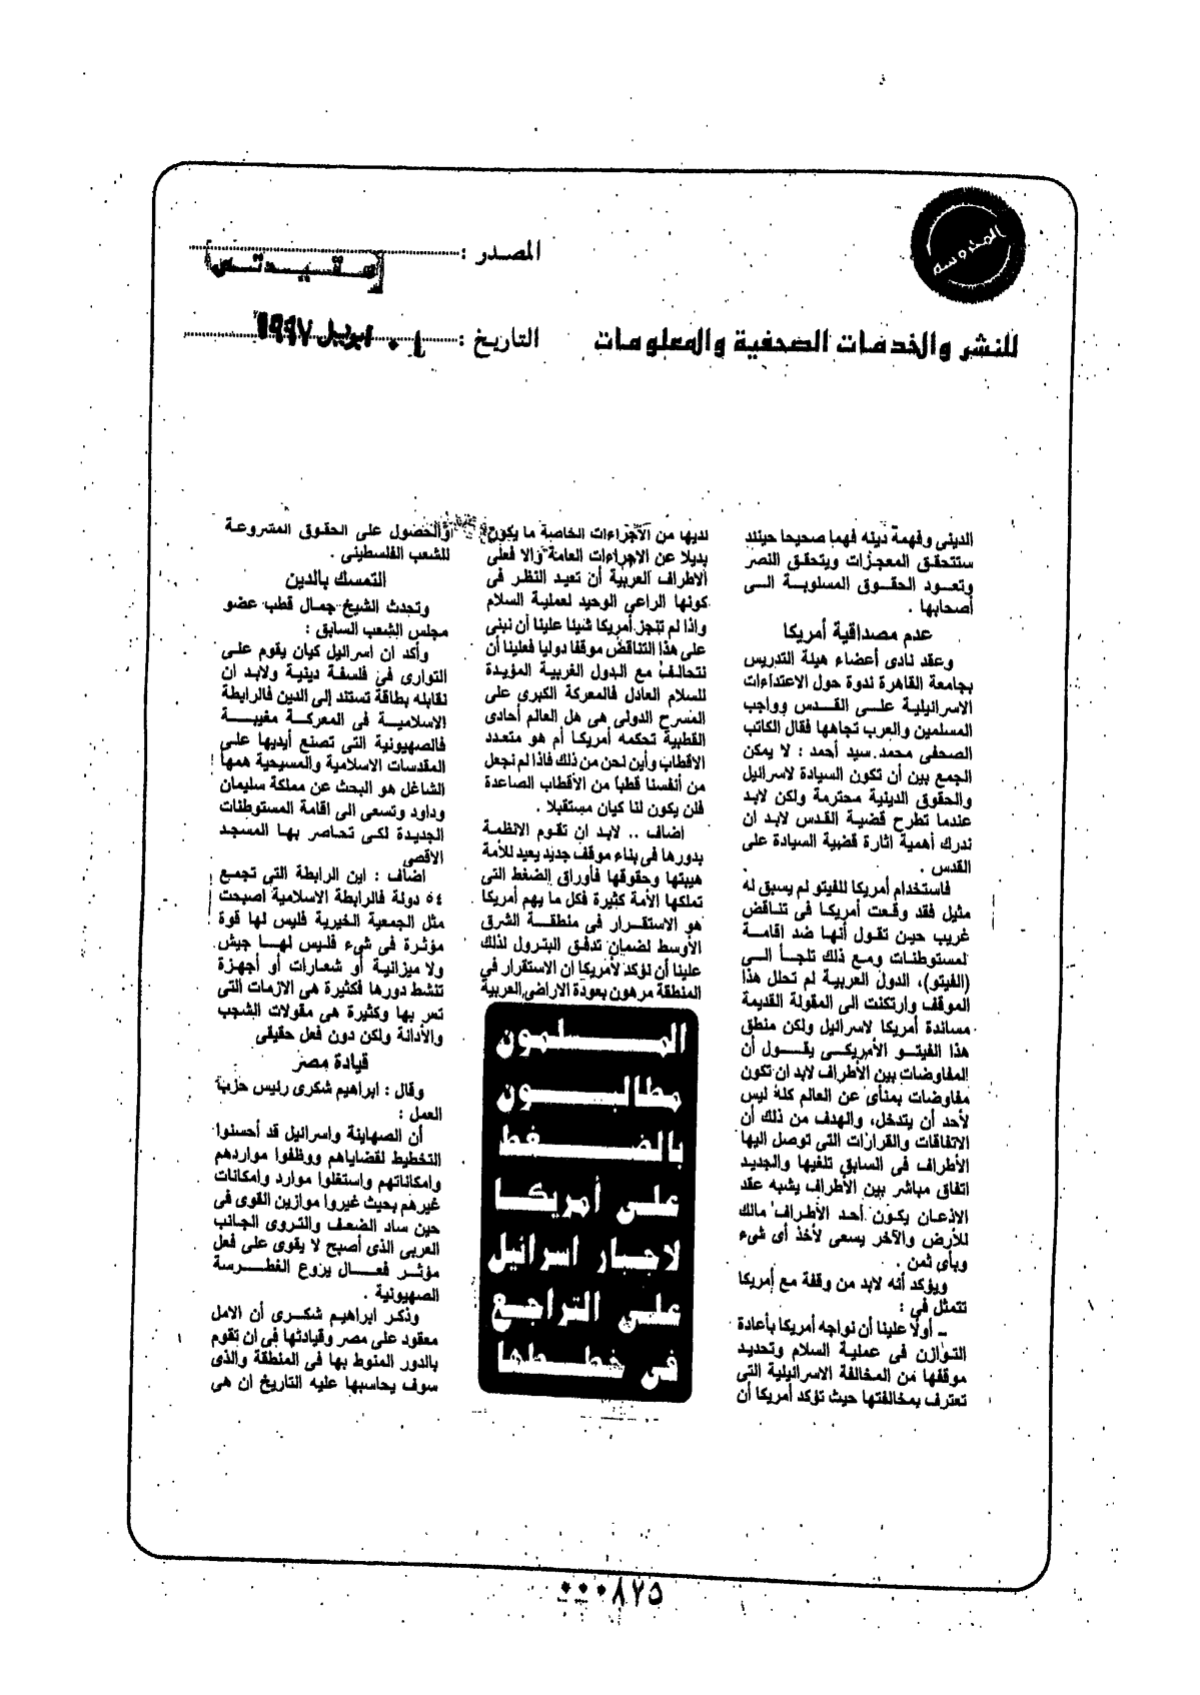 المحروسه
المصدر :
للنشر والخدمات الصحفية والمعلومات
التاريخ : ابريل ١٩٩٧
الدينى وفهمة دينه فهما صحيحا حينئذ
ستتحقق المعجزات ويتحقق النصر
وتعود الحقوق المسلوبة الى
أصحابها .
عدم مصداقية أمريكا
وعقد نادى أعضاء هيئة التدريس
بجامعة القاهرة ندوة حول الاعتداءات
الاسرائيلية على القدس وواجب
المسلمين والعرب تجاهها فقال الكاتب
الصحفى محمد سيد أحمد : لا يمكن
الجمع بين أن تكون السيادة لاسرائيل
والحقوق الدينية محترمة ولكن لابد
عندما تطرح قضية القدس لابد ان
ندرك أهمية اثارة قضية السيادة على
القدس .
فاستخدام أمريكا للفيتو لم يسبق له
مثيل فقد وقعت أمريكا فى تناقض
غريب حين تقول أنها ضد اقامة
لمستوطنات ومع ذلك تلجأ الى
(الفيتو)، الدول العربية لم تحلل هذا
الموقف وارتكنت الى المقولة القديمة
مساندة أمريكا لاسرائيل ولكن منطق
هذا الفيتو الأمريكى يقول أن
المفاوضات بين الأطراف لابد ان تكون
مفاوضات بمنأى عن العالم كله ليس
لأحد أن يتدخل، والهدف من ذلك أن
الاتفاقات والقرارات التى توصل اليها
الأطراف فى السابق تلغيها والجديد
اتفاق مباشر بين الأطراف يشبه عقد
الاذعان يكون أحد الأطراف مالك
للأرض والآخر يسعى لأخذ أى شىء
وبأى ثمن .
ويؤكد أنه لابد من وقفة مع أمريكا
تتمثل فى :
ـ أولا علينا أن نواجه أمريكا بأعادة
التوازن فى عملية السلام وتحديد
موقفها من المخالفة الاسرائيلية التى
تعترف بمخالفتها حيث تؤكد أمريكا أن
لديها من الاجراءات الخاصة ما يكون
بديلا عن الاجراءات العامة والا فعلى
الاطراف العربية أن تعيد النظر فى
كونها الراعى الوحيد لعملية السلام
واذا لم تنجز أمريكا شيئا علينا أن نبنى
على هذا التناقض موقفا دوليا فعلينا أن
نتحالف مع الدول الغربية المؤيدة
للسلام العادل فالمعركة الكبرى على
المسرح الدولى هى هل العالم أحادى
القطبية تحكمه أمريكا أم هو متعدد
الاقطاب وأين نحن من ذلك فاذا لم نجعل
من أنفسنا قطبا من الأقطاب الصاعدة
فلن يكون لنا كيان مستقبلا .
اضاف .. لابد ان تقوم الانظمة
بدورها فى بناء موقف جديد يعيد للأمة
هيبتها وحقوقها فأوراق الضغط التى
تملكها الأمة كثيرة فكل ما يهم أمريكا
هو الاستقرار فى منطقة الشرق
الأوسط لضمان تدفق البترول لذلك
علينا أن نؤكد لأمريكا ان الاستقرار فى
المنطقة مرهون بعودة الاراضى العربية
المسلمون
مطالبون
بالضغط
على أمريكا
لاجبار اسرائيل
على التراجع
فى خططها
والحصول على الحقوق المشروعة
للشعب الفلسطينى .
التمسك بالدين
وتحدث الشيخ جمال قطب عضو
مجلس الشعب السابق :
وأكد ان اسرائيل كيان يقوم على
التوارى فى فلسفة دينية ولابد ان
نقابله بطاقة تستند إلى الدين فالرابطة
الاسلامية فى المعركة مغيبة
فالصهيونية التى تصنع أيديها على
المقدسات الاسلامية والمسيحية همها
الشاغل هو البحث عن مملكة سليمان
وداود وتسعى الى اقامة المستوطنات
الجديدة لكى تحاصر بها المسجد
الاقصى
اضاف : اين الرابطة التى تجمع
٥٤ دولة فالرابطة الاسلامية اصبحت
مثل الجمعية الخيرية فليس لها قوة
مؤثرة فى شىء فليس لها جيش
ولا ميزانية أو شعارات أو أجهزة
تنشط دورها فكثيرة هى الازمات التى
تمر بها وكثيرة هى مقولات الشجب
والأدانة ولكن دون فعل حقيقى
قيادة مصر
وقال : ابراهيم شكرى رئيس حزب
العمل :
أن الصهاينة واسرائيل قد أحسنوا
التخطيط لقضاياهم ووظفوا مواردهم
وامكاناتهم واستغلوا موارد وامكانات
غيرهم بحيث غيروا موازين القوى فى
حين ساد الضعف والتروى الجانب
العربى الذى أصبح لا يقوى على فعل
مؤثر فعال يروع الغطرسة
الصهيونية .
وذكر ابراهيم شكرى أن الامل
معقود على مصر وقيادتها فى ان تقوم
بالدور المنوط بها فى المنطقة والذى
سوف يحاسبها عليه التاريخ ان هى
٠٠٠٨٢٥